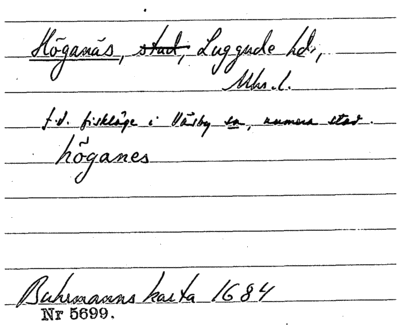 Höganäs, stad, Luggude hd.,
Mhs. l.
f.d. fiskläge i Väsby sn, numera stad.
höganes
Buhrmanns karta 1684
Nr 5699.